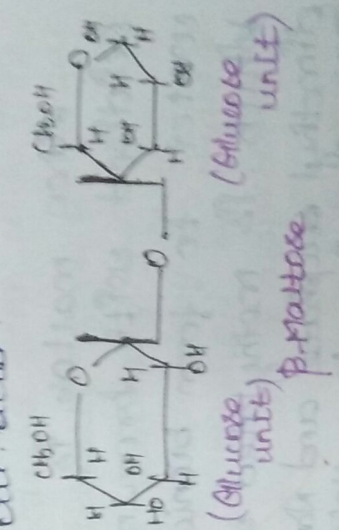 CH₂OH CH₂OH
O O OH
H H H H H
H OH H OH H
HO O OH
H OH H
(Glucose unit) (Glucose unit)
β-Maltose